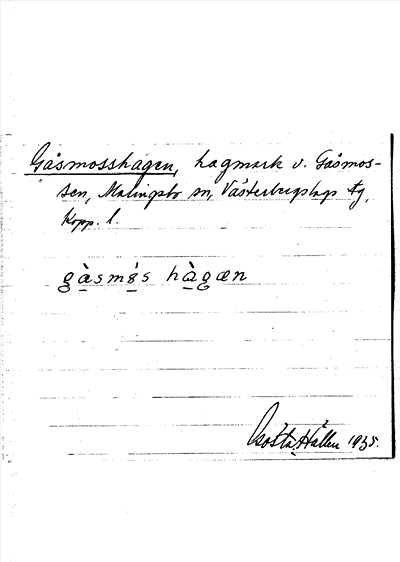 Gåsmosshagen, hagmark v. Gåsmos-
sen, Malingsbo sn, Västerbergslags tg,
Kopp. l.
gàsmɷ́s hàgæn
Gösta Hallén 1935.